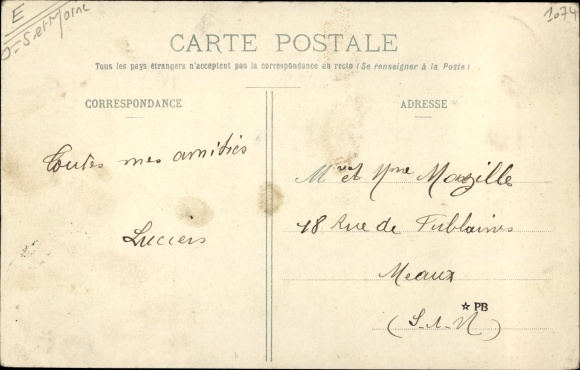 E
D = S. et Marne
1074
CARTE POSTALE
Tous les pays étrangers n'acceptent pas la correspondance au recto (Se renseigner à la Poste)
CORRESPONDANCE
ADRESSE
Toutes mes amitiés
Lucien
Mr et Mme Mazille
18 Rue de Fublaines
Meaux
☆ PB
(S-&-M)